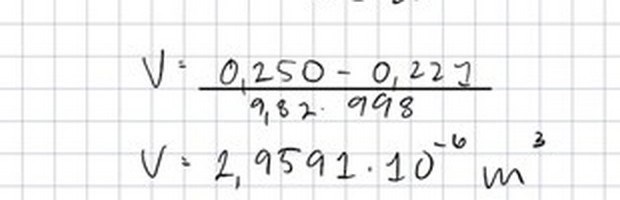 V = 0,250 - 0,221
9,82 · 998
V = 2,9591 · 10^-6 m^3